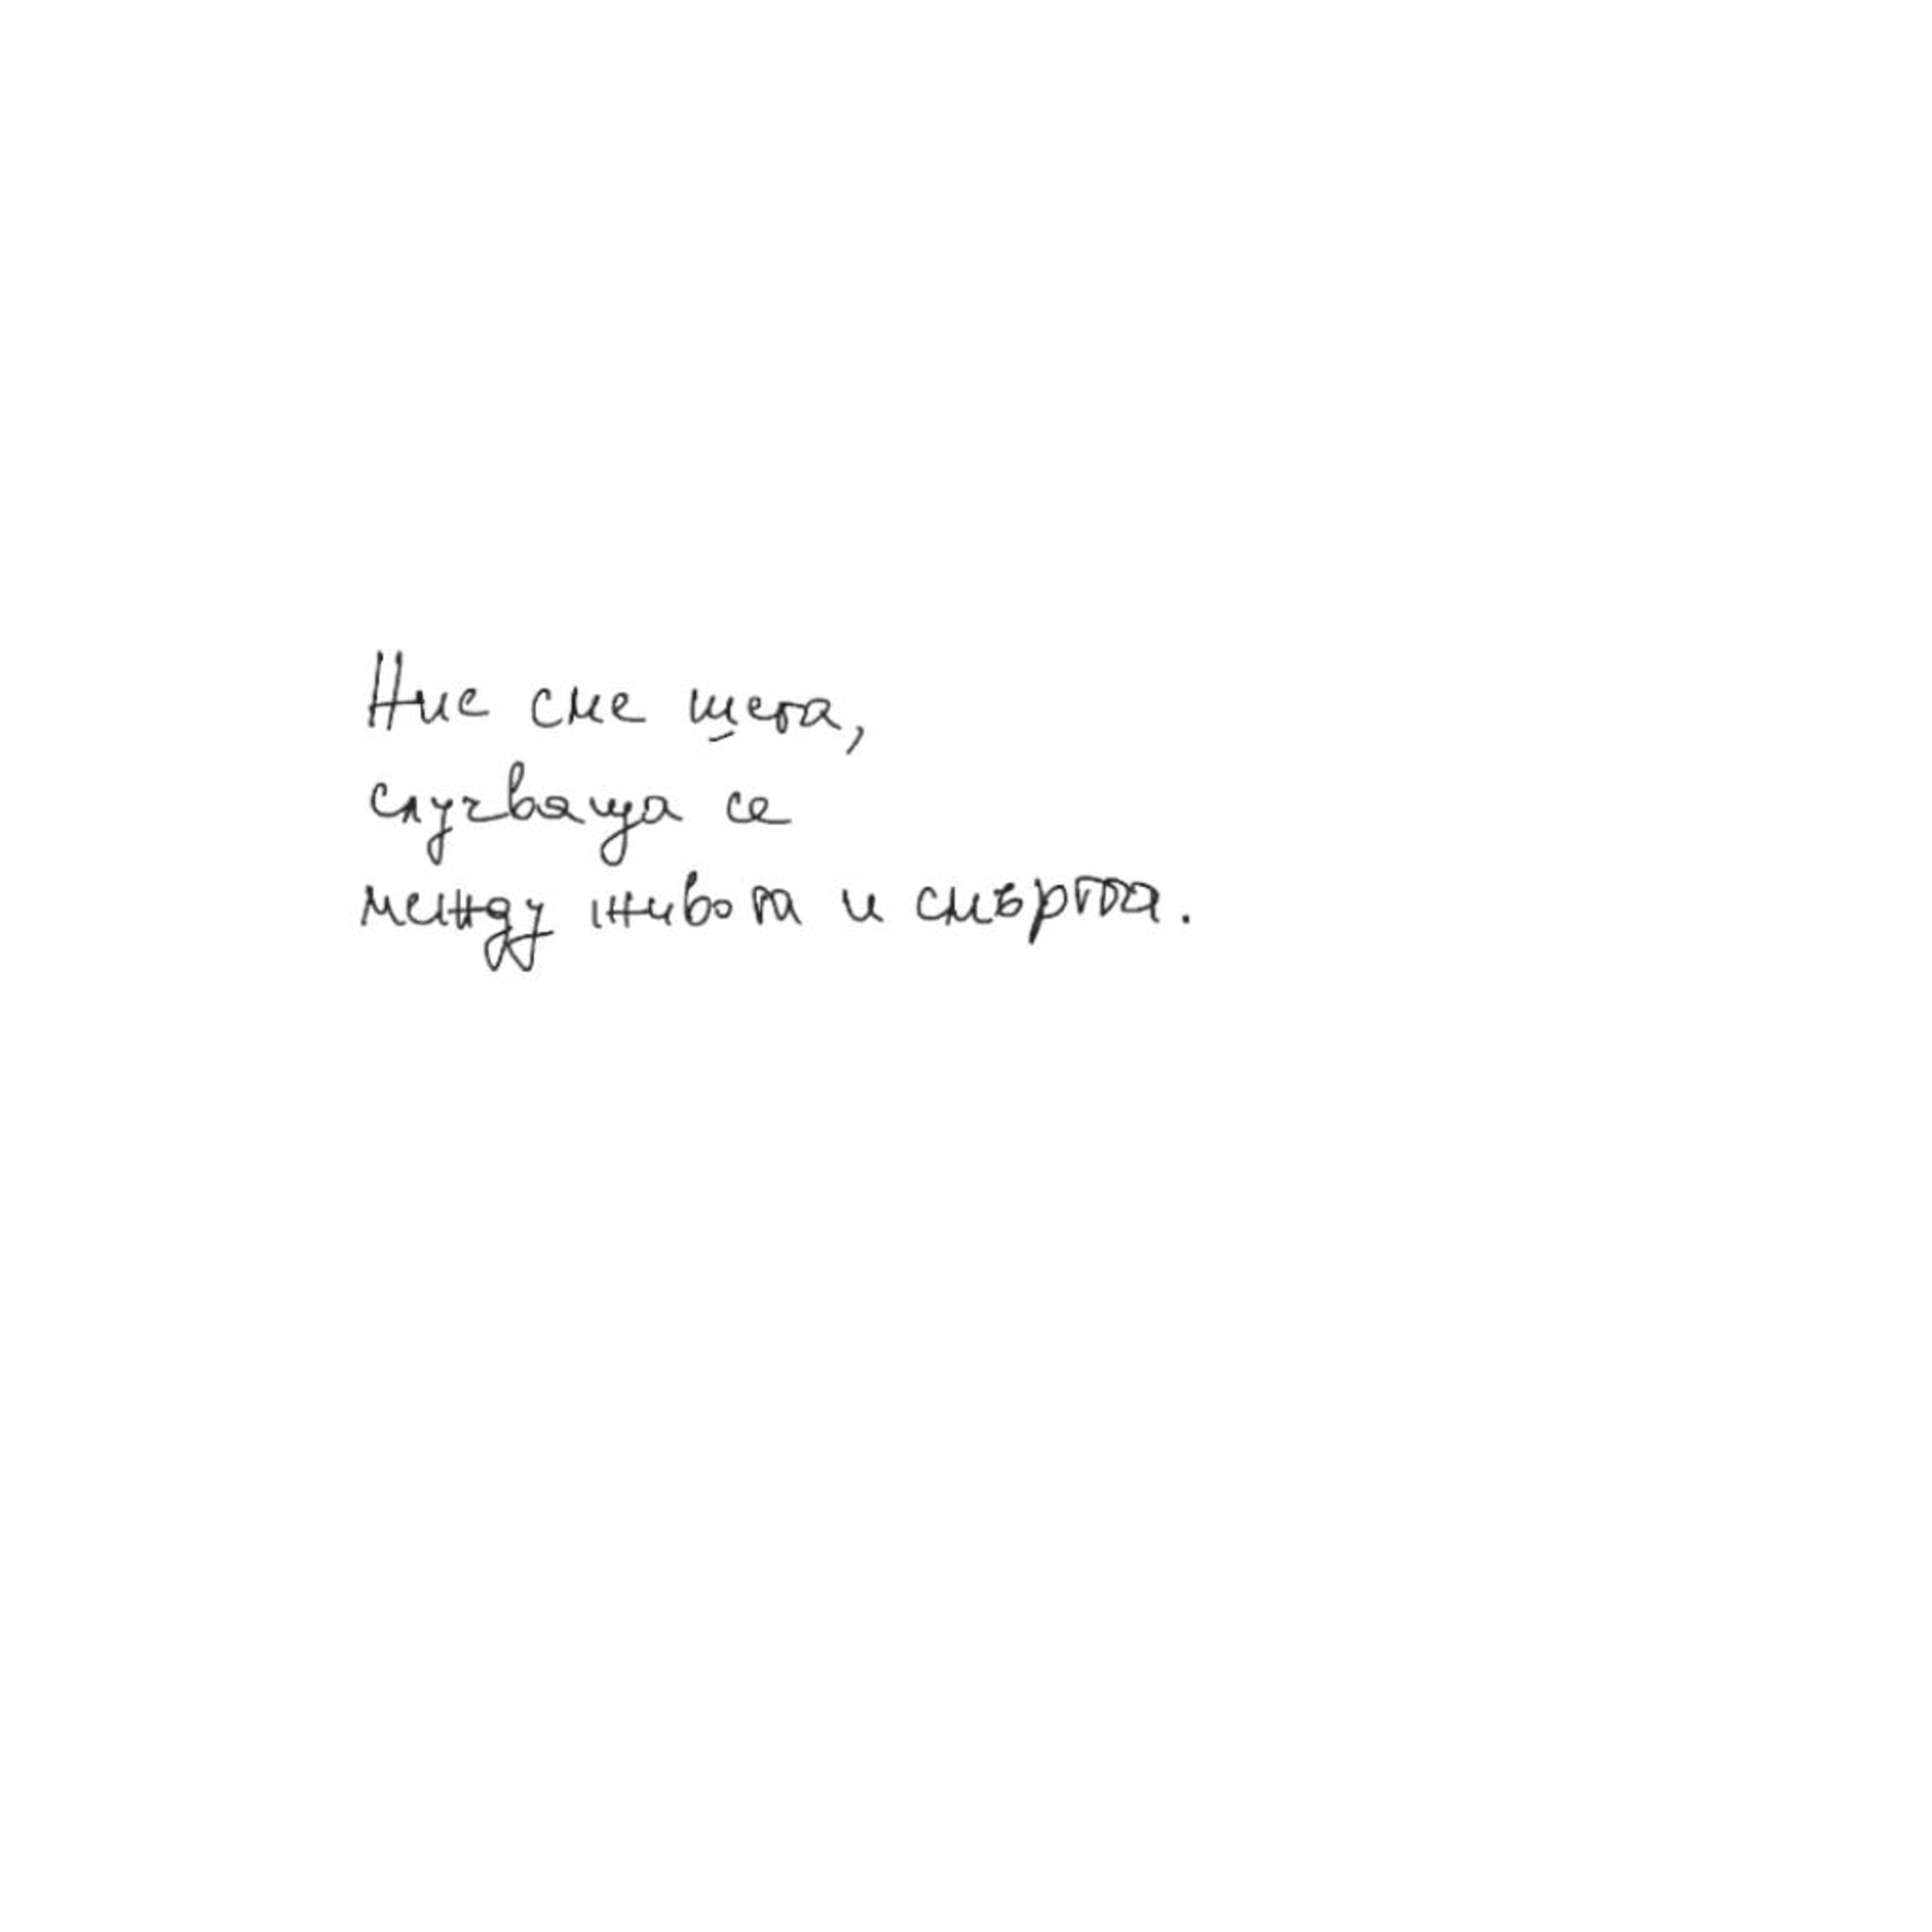 Ние сме шега,
случваща се
между живота и смъртта.